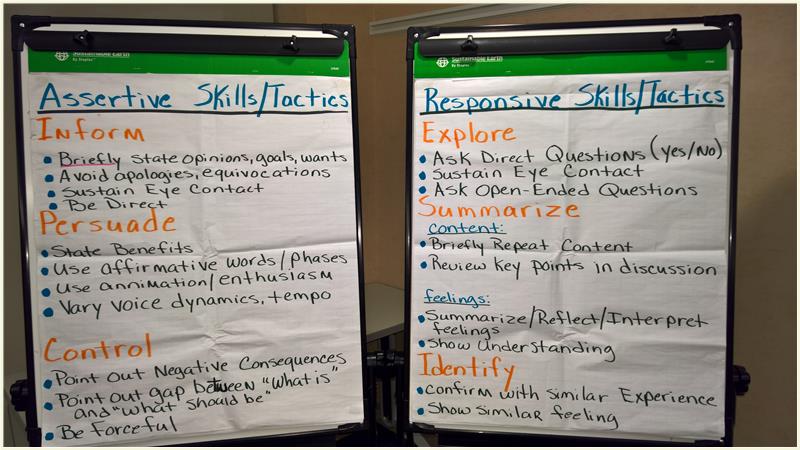 Sustainable Earth
By Staples
Assertive Skills/Tactics
Inform
• Briefly state opinions, goals, wants
• Avoid apologies, equivocations
• Sustain Eye Contact
• Be Direct
Persuade
• State Benefits
• Use affirmative words/phases
• Use annimation/enthusiasm
• Vary voice dynamics, tempo
Control
• Point Out Negative Consequences
• Point out gap between "What is"
and "what should be"
• Be Forceful
Sustainable Earth
By Staples
Responsive Skills/Tactics
Explore
• Ask Direct Questions (yes/no)
• Sustain Eye Contact
• Ask Open-Ended Questions
Summarize
content:
• Briefly Repeat Content
• Review key points in discussion
feelings:
• Summarize/Reflect/Interpret
feelings
• Show Understanding
Identify
• confirm with similar Experience
• Show similar feeling